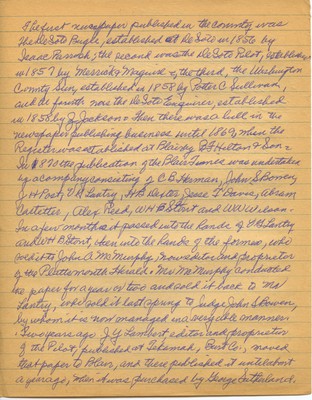 The first newspaper published in the county was
the DeSoto Bugle, established at DeSoto in 1856 by
Isaac Parrish; the second was the DeSoto Pilot, established
in 1857 by Merrick & Maguire & the third, the Washington
County Sun, established in 1858 by Potter C. Sullivan,
and the fourth was the DeSoto Enquirer, established
in 1858 by Z Jackson. Then there was a lull in the
newspaper publishing business until 1869, when the
Register was established at Blair by Hilton & Son.
In 1870 the publication of the Blair Times was undertaken
by a company consisting of C.B. Herman, John S. Bowen,
J H Post, V H Lantry, H B Dexter, Jesse T Davis, Abram
Castetter, Alex Reed, W H B Stout and W W Wilson.
In a few months it passed into the hands of V H Lantry
and W H B Stout, then into the hands of the former, who
sold it to John A. McMurphy, now editor and proprietor
of the Plattsmouth Herald. Mr. McMurphy conducted
the paper for a year or two and sold it back to Mr
Lantry, who sold it last spring to Judge John S. Bowen,
by whom it is now managed in a very able manner.
Two years ago J.G. Lambert editor and proprietor
of the Pilot, published at Tekamah, Burt Co., moved
that paper to Blair, and there published it until about
a year ago, when it was purchased by George Sutherland.